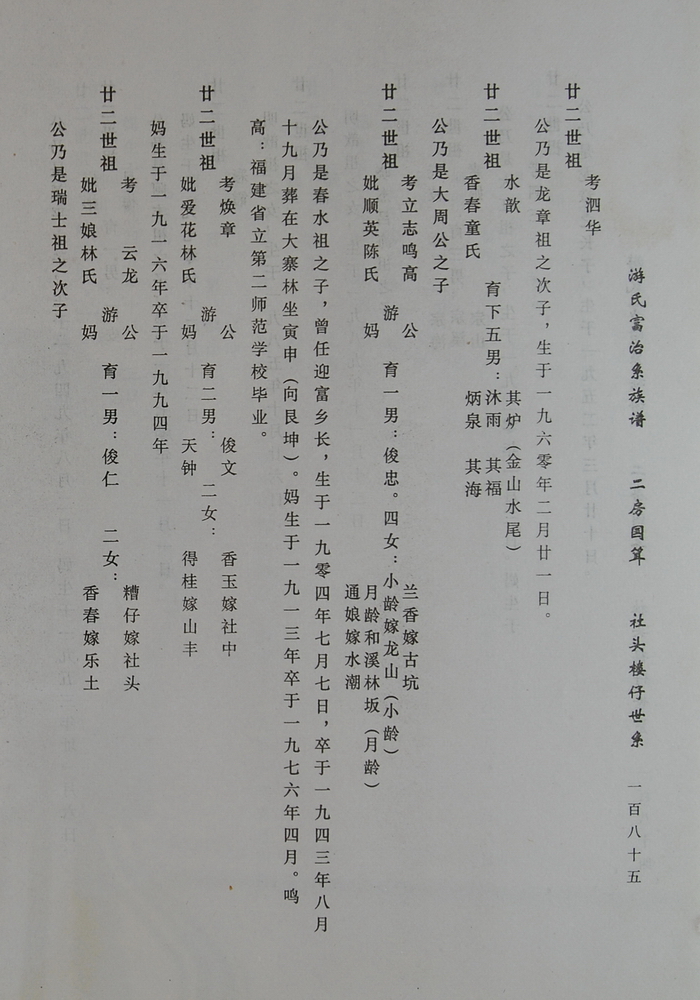 游氏富治系族谱 二房国算 社头楼仔世系 一百八十五
考泗华
廿二世祖
公乃是龙章祖之次子，生于一九六零年二月廿一日。
水歆 其炉（金山水尾）
廿二世祖 育下五男：沐雨 其福
香春童氏 炳泉 其海
公乃是大周公之子
考立志鸣高 公 兰香嫁古坑
廿二世祖 游 育一男：俊忠。四女：小龄嫁龙山（小龄）
妣顺英陈氏 妈 月龄和溪林坂（月龄）
通娘嫁水潮
公乃是春水祖之子，曾任迎富乡长，生于一九零四年七月七日，卒于一九四三年八月
十九月葬在大寨林坐寅申（向艮坤）。妈生于一九一三年卒于一九七六年四月。鸣
高：福建省立第二师范学校毕业。
考焕章 公 俊文 香玉嫁社中
廿二世祖 游 育二男： 二女：
妣爱花林氏 妈 天钟 得桂嫁山丰
妈生于一九一六年卒于一九九四年
考 云龙 公 糟仔嫁社头
廿二世祖 游 育一男：俊仁 二女：
妣三娘林氏 妈 香春嫁乐土
公乃是瑞士祖之次子